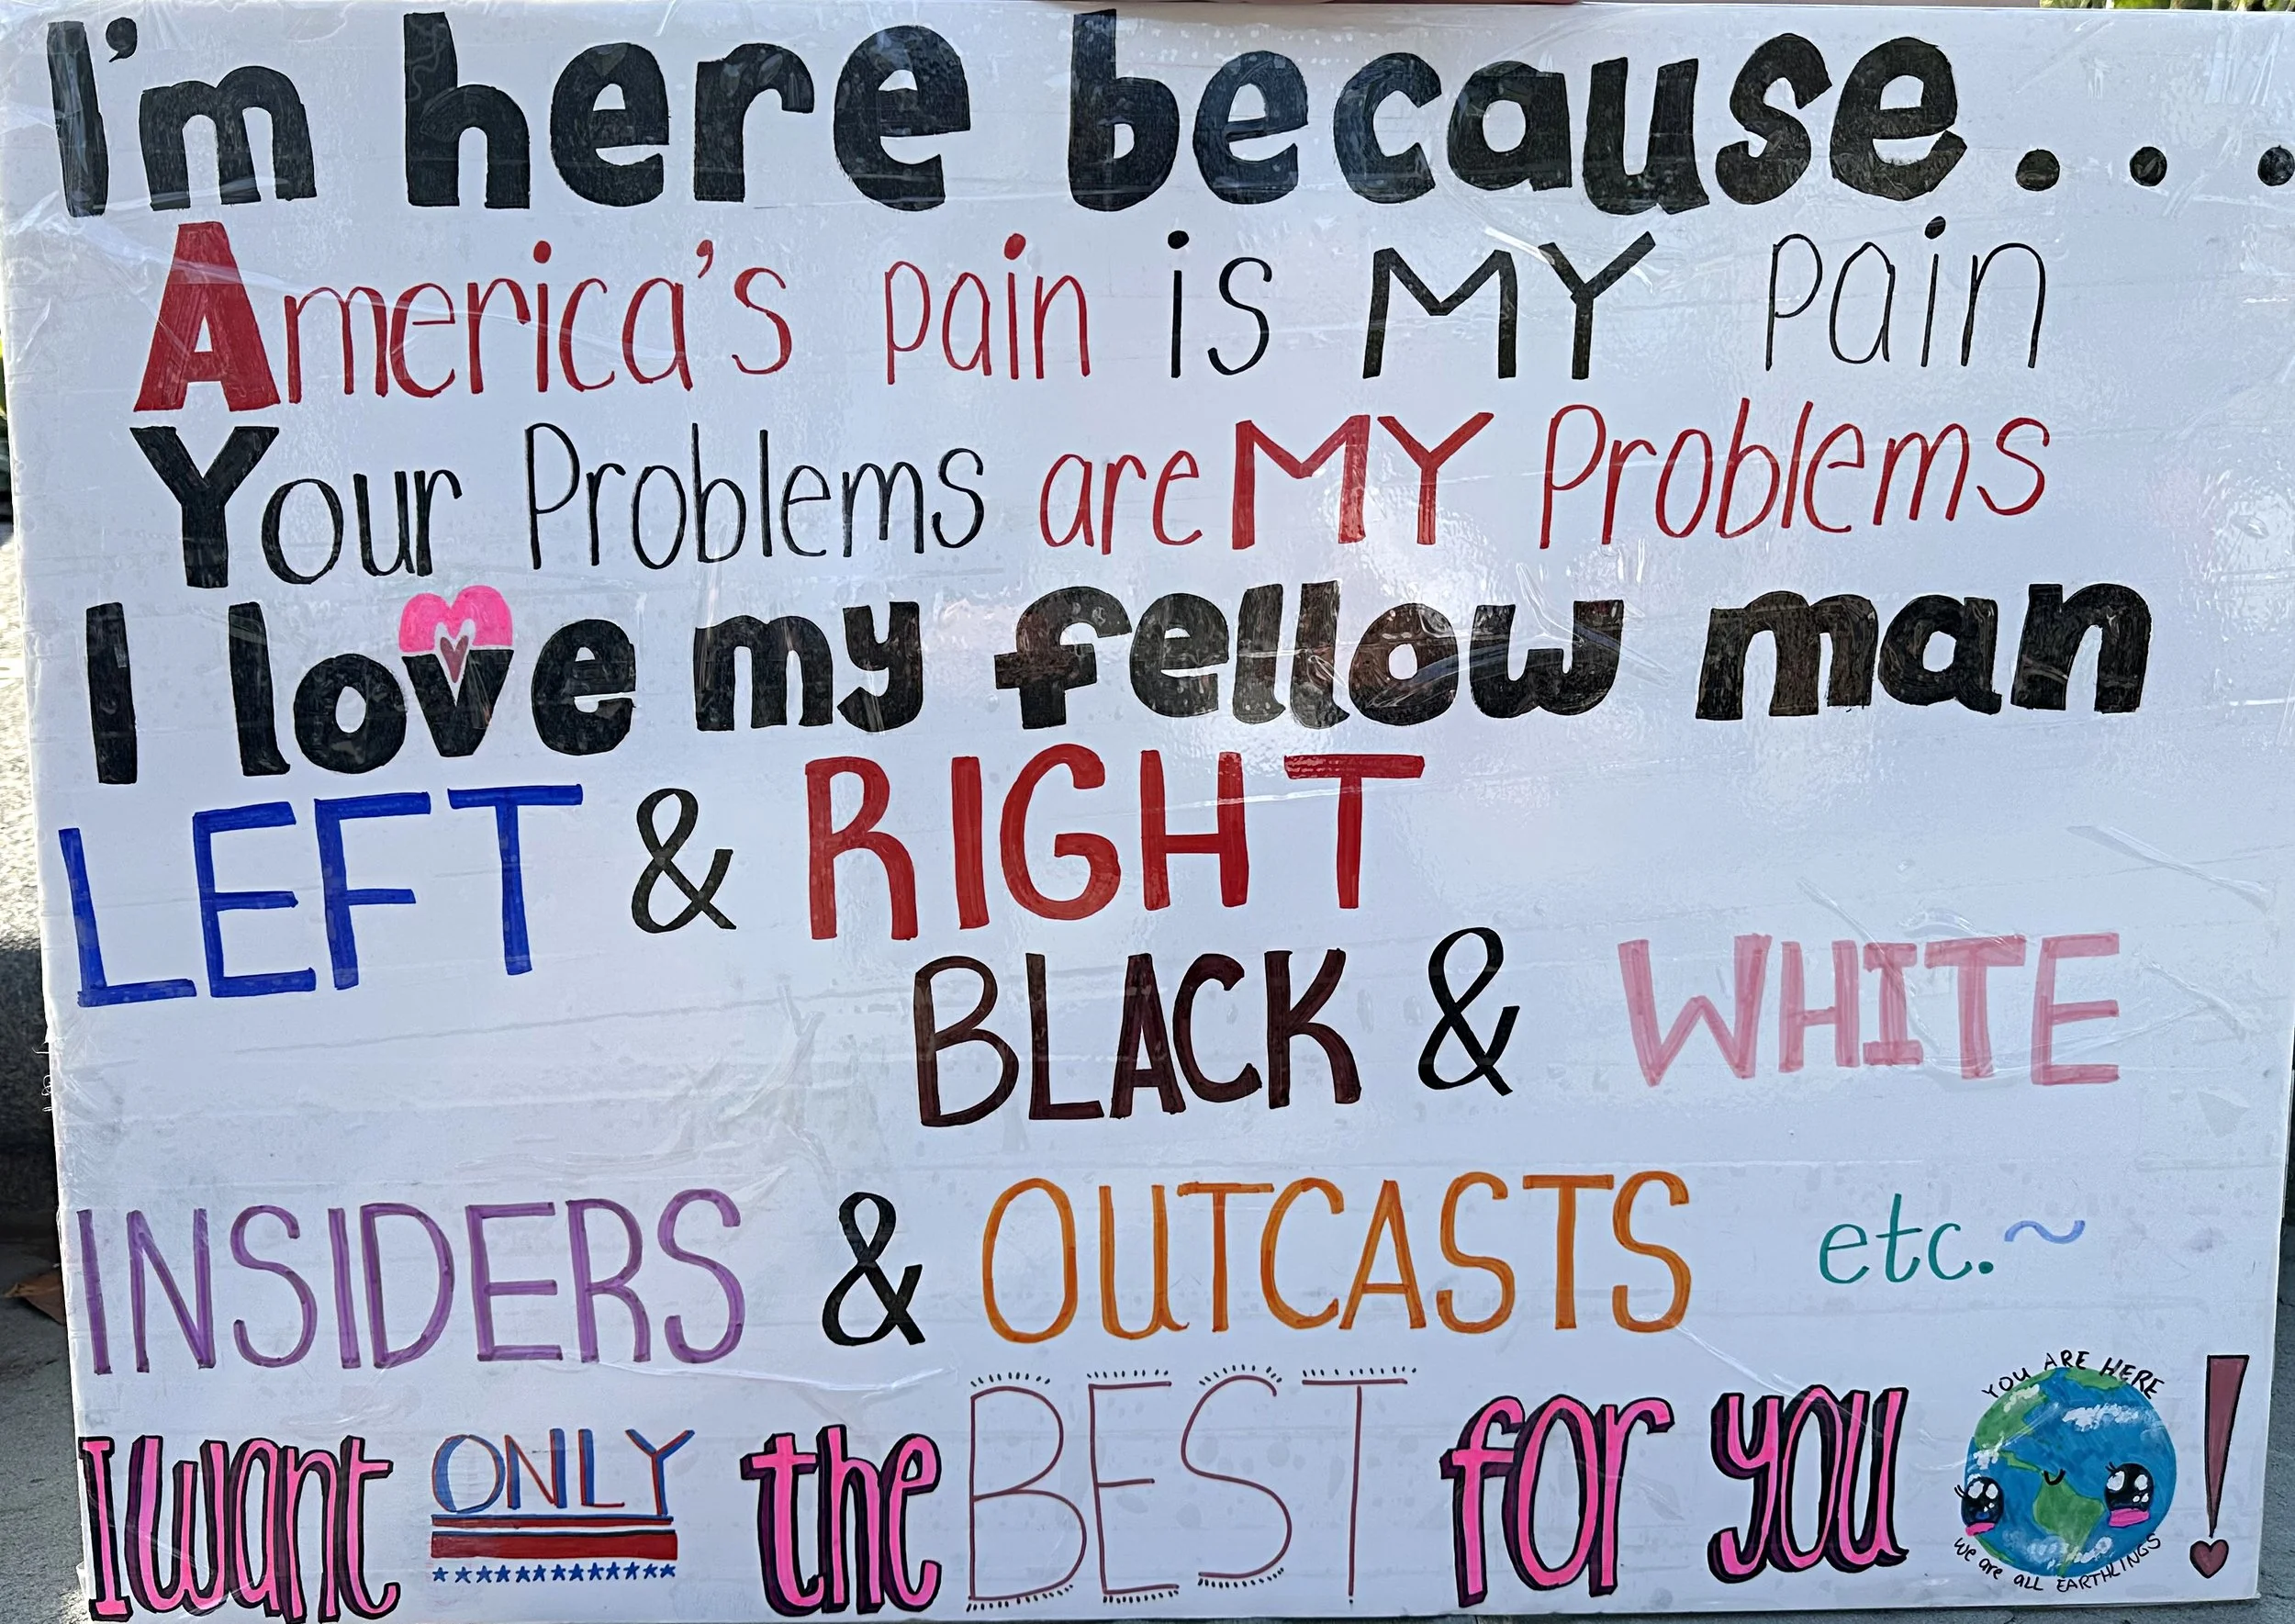 I'm here because...
America's pain is MY pain
Your Problems are MY Problems
I love my fellow man
LEFT & RIGHT
BLACK & WHITE
INSIDERS & OUTCASTS etc.~
I want ONLY the BEST for you !
YOU ARE HERE
We are all EARTHLINGS